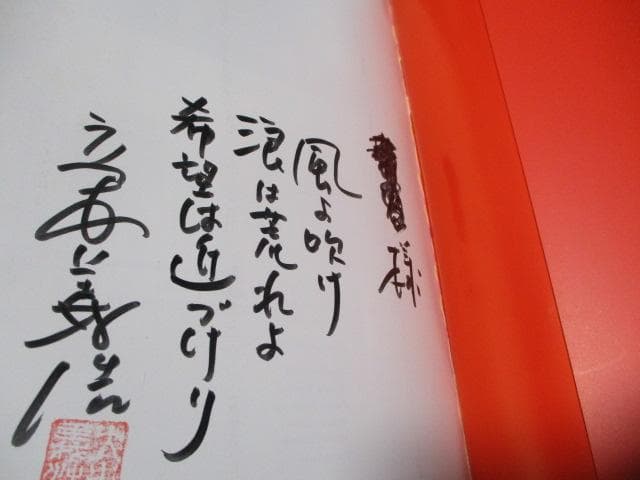 様
風よ吹け
浪は荒れよ
希望は近づけり